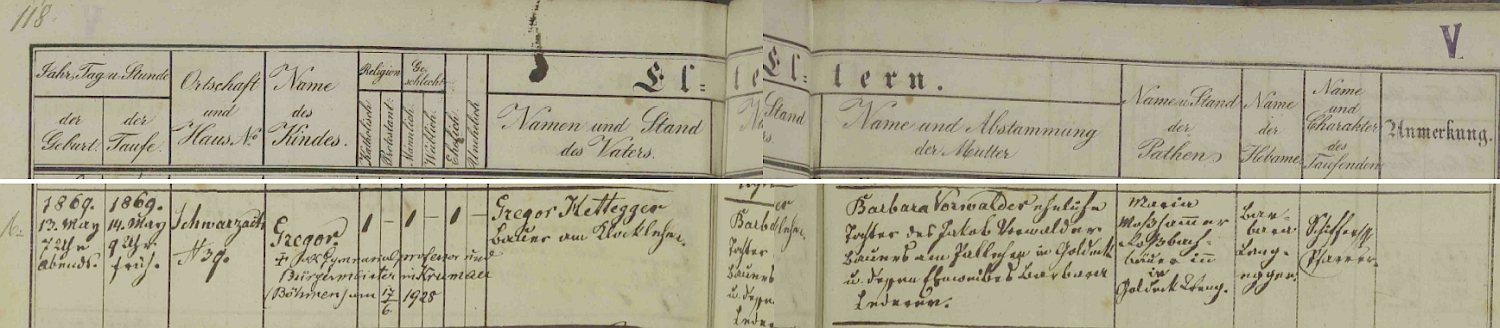 118.
V
El- tern.
Jahr, Tag u. Stunde
der Geburt.
der Taufe.
Ortschaft
und
Haus No
Name
des
Kindes.
Religion
Katholisch
Protestant.
Geschlecht
Männlich.
Weiblich.
Ehelich
Unehelich
Namen und Stand
des Vaters.
Name und Abstammung
der Mutter
Name u. Stand
der
Pathen
Name
der
Hebame
Name
und
Charakter
des
Taufenden
Anmerkung.
1869.
13. May
7 Uhr
abends.
1869.
14. May
9 Uhr
früh.
Schwarzach
N 39.
Gregor
Gymnasialprofessor und
Bürgermeister in Krumau
(Böhmen) am 17/6 1928
1 – 1 – 1 –
Gregor Kettegger
Bauer am
Barbara Vorwalder eheliche
Tochter des Jakob Vorwalder
Bauers am in Goldegg
u. dessen Eheweibes Barbara
Lederer.
Maria
Moßhammer
bäuerin
in
Goldeck
Barbara
Schifferl
Pfarrer